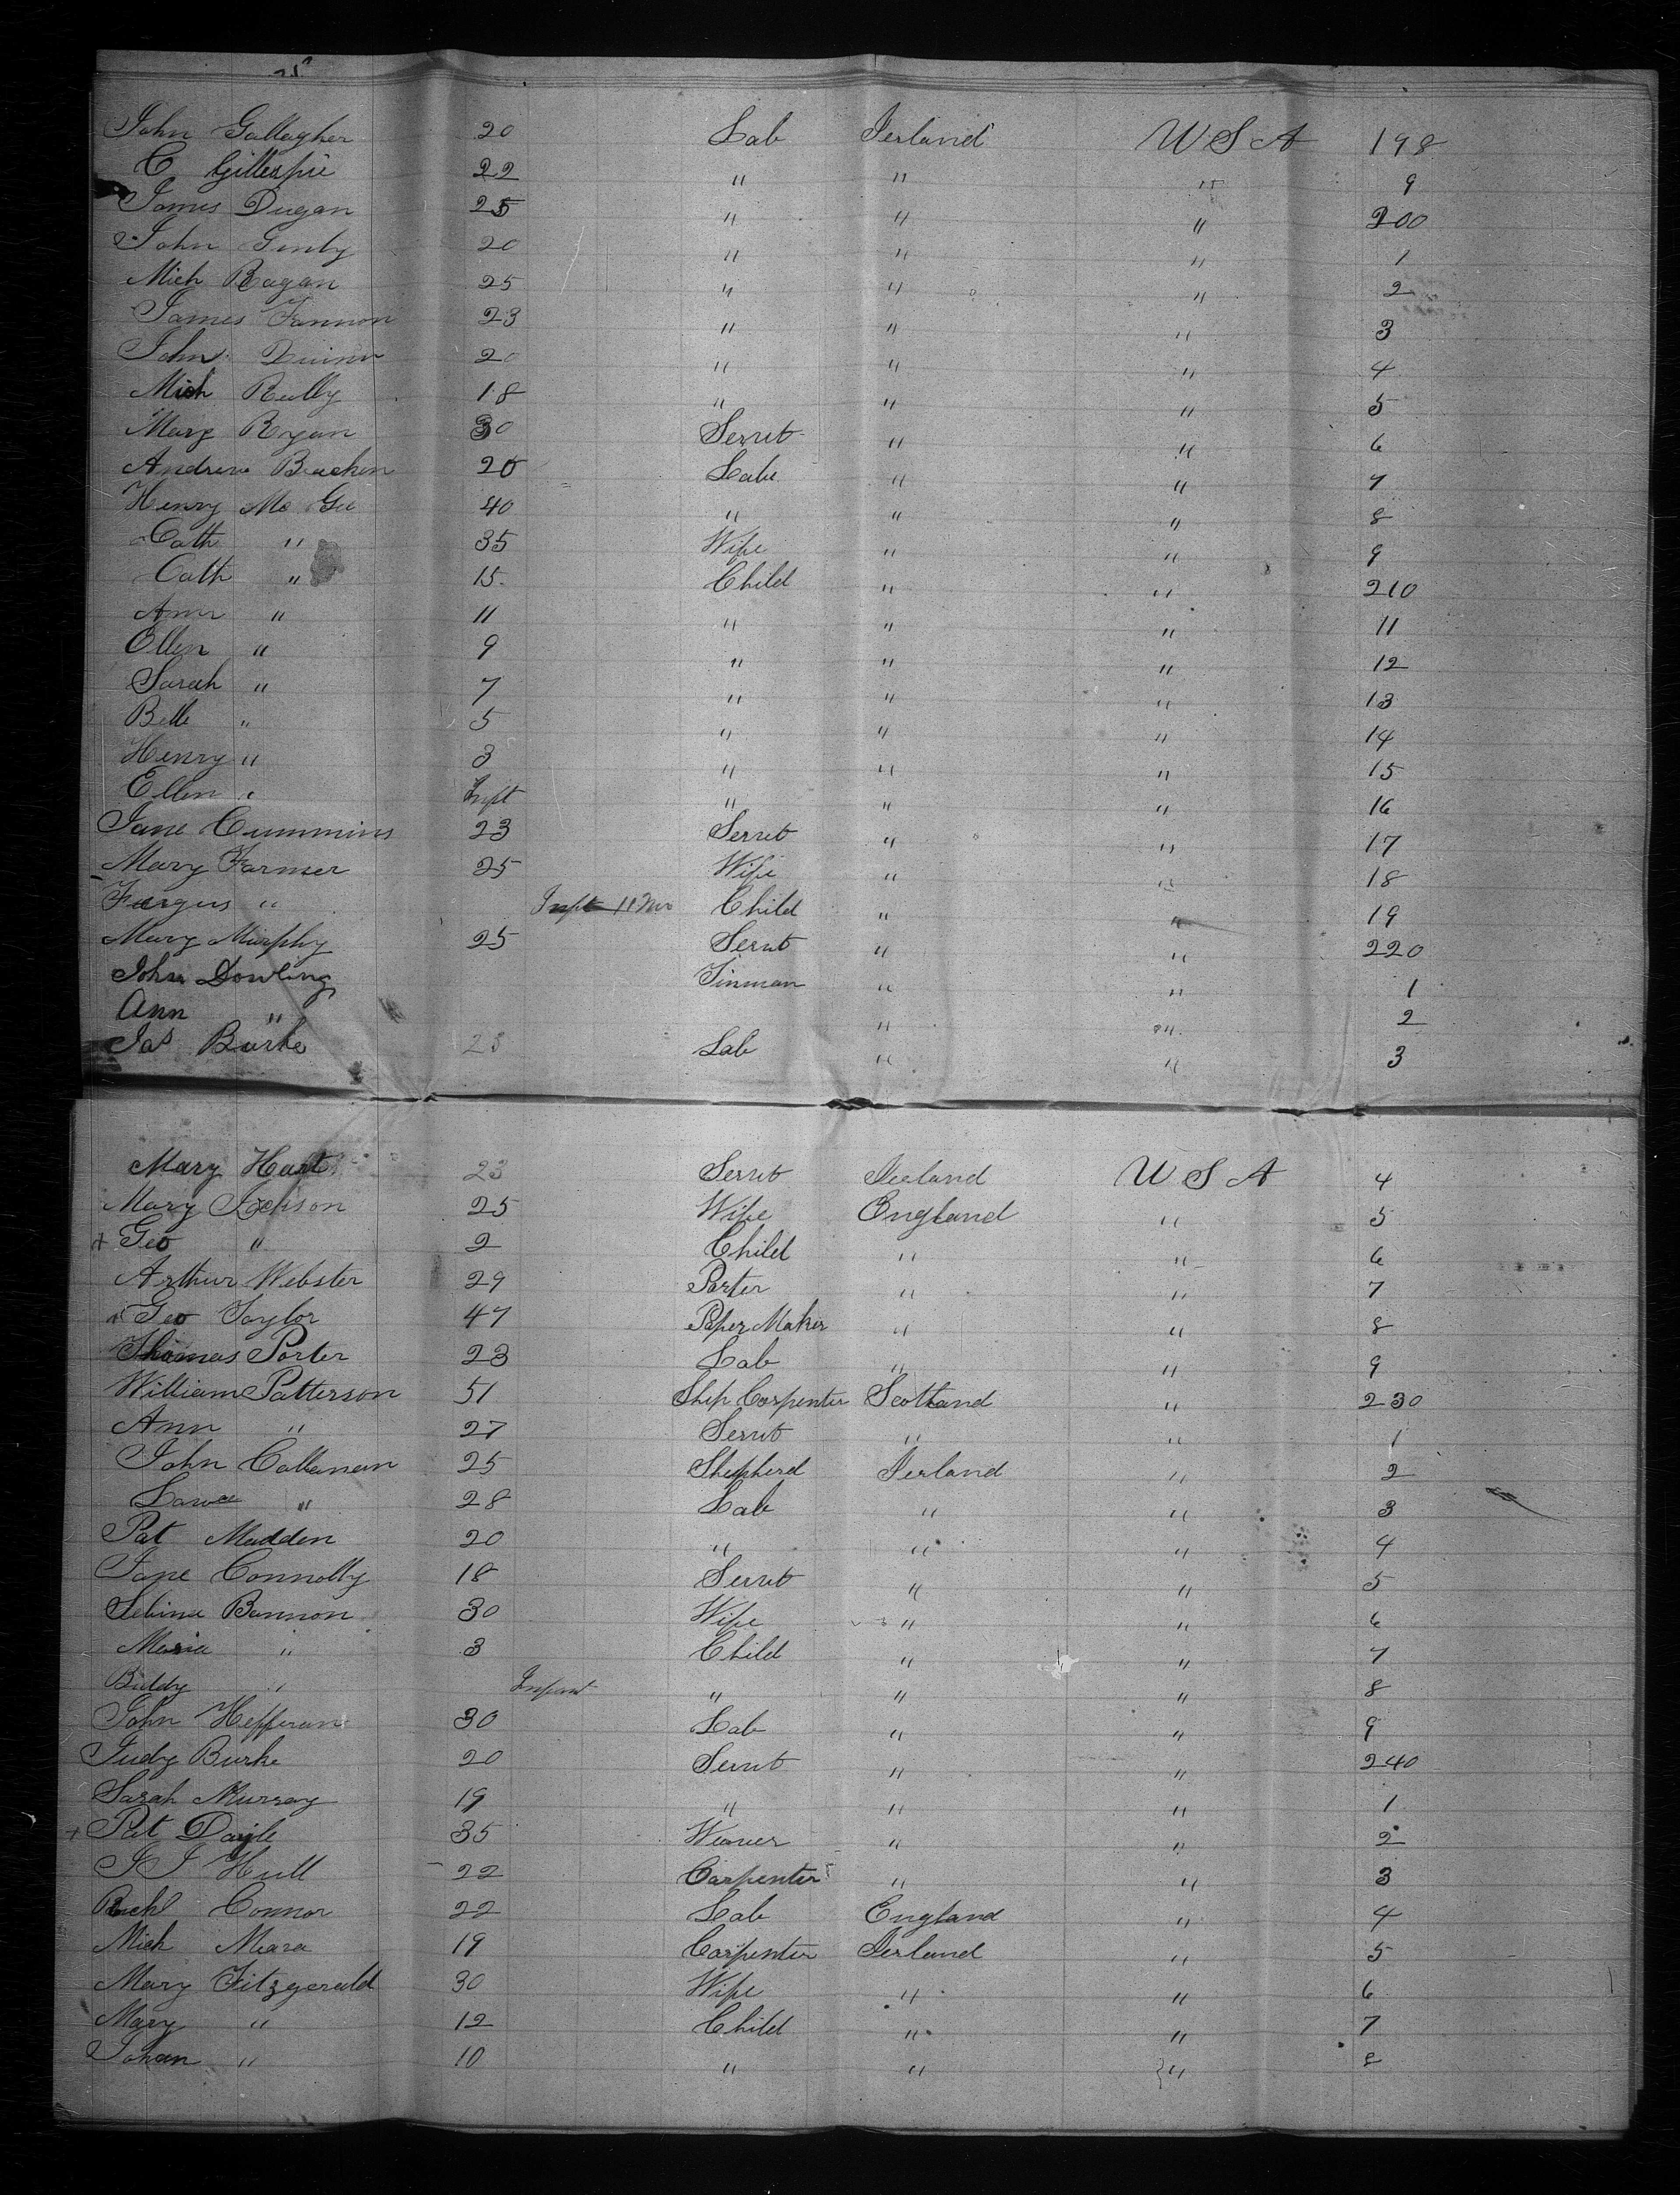 John Gallagher 20 Lab Ierland U S A 198
C Gillespie 22 " " " 9
James Dugan 25 " " " 200
John 20 " " " 1
Mich Ragan 25 " " " 2
James Fannon 23 " " " 3
John Quinn 20 " " " 4
Mich Reilly 18 " " " 5
Marg Ryan 30 Servt " " 6
Andrew Bracken 20 Labr " " 7
Henry Mc Gee 40 " " " 8
Cath " 35 Wife " " 9
Cath " 15 Child " " 210
Ann " 11 " " " 11
Ellen " 9 " " " 12
Sarah " 7 " " " 13
Bell " 5 " " " 14
Henry " 3 " " " 15
Ellen " Inft " " " 16
Jane Cummins 23 Servt " " 17
Mary Farmer 25 Wife " " 18
Fargus " Inft 11 Mo Child " " 19
Mary Murphy 25 Servt " " 220
John Dowling Tinman " " 1
Ann " " " 2
Jas Burke 23 Lab " " 3
Mary Hart 23 Servt Ireland U S A 4
Mary 25 Wife England " 5
+ Geo " 2 Child " " 6
Arthur Webster 29 Porter " " 7
Geo Taylor 47 Paper Maker " " 8
Thomas Porter 23 Lab " " 9
William Patterson 51 Ship Carpenter Scotland " 230
Ann " 27 Servt " " 1
John Callanan 25 Shepherd Ierland " 2
Lawce " 28 Lab " " 3
Pat Madden 20 " " " 4
Jane Connolly 18 Servt " " 5
Sebina Bannon 30 Wife " " 6
Maria " 3 Child " " 7
Biddy " Infant " " " 8
John Hefferan 30 Lab " " 9
Judy Burke 20 Servt " " 240
Sarah Murray 19 " " " 1
+ Pat Doyle 35 Weaver " " 2
J J Hull 22 Carpenter " " 3
Richd Connor 22 Lab England " 4
Mich Mara 19 Carpenter Ierland " 5
Mary Fitzgerald 30 Wife " " 6
Mary " 12 Child " " 7
Johan " 10 " " " 8